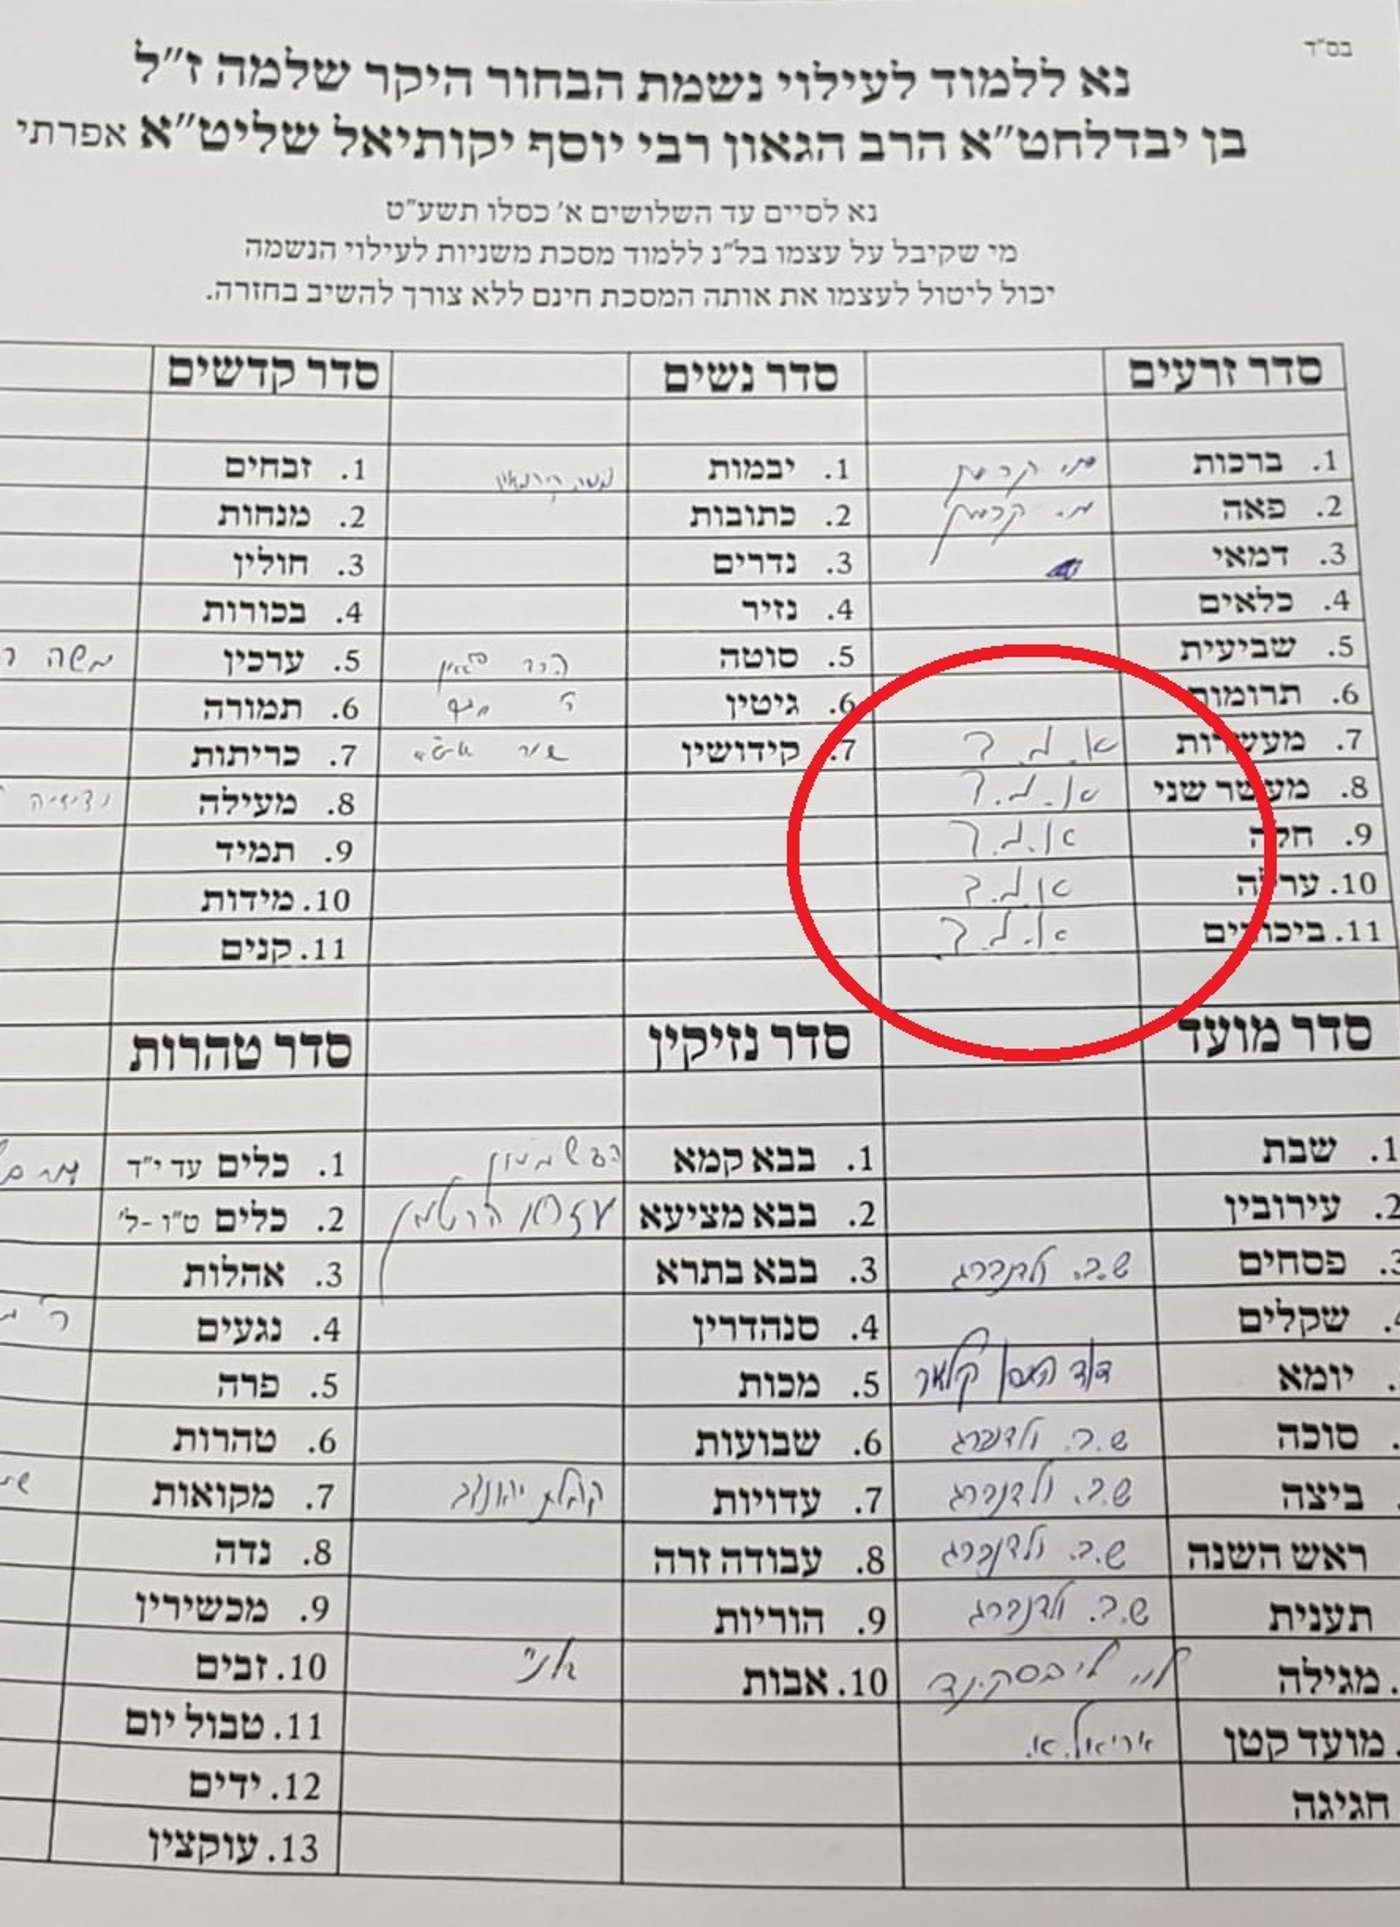 בס"ד
נא ללמוד לעילוי נשמת הבחור היקר שלמה ז"ל
בן יבדלחט"א הרב הגאון רבי יוסף יקותיאל שליט"א אפרתי
נא לסיים עד השלושים א' כסלו תשע"ט
מי שקיבל על עצמו בל"נ ללמוד מסכת משניות לעילוי הנשמה
יכול ליטול לעצמו את אותה המסכת חינם ללא צורך להשיב בחזרה.
סדר זרעים סדר נשים סדר קדשים
1. ברכות 1. יבמות 1. זבחים
2. פאה 2. כתובות 2. מנחות
3. דמאי 3. נדרים 3. חולין
4. כלאים 4. נזיר 4. בכורות
5. שביעית 5. סוטה 5. ערכין משה
6. תרומות 6. גיטין 6. תמורה
7. מעשרות 7. קידושין 7. כריתות
8. מעשר שני 8. מעילה
9. חלה 9. תמיד
10. ערלה 10. מידות
11. ביכורים 11. קנים
סדר מועד סדר נזיקין סדר טהרות
1. שבת 1. בבא קמא 1. כלים עד י"ד
2. עירובין 2. בבא מציעא עזרא הרטמן 2. כלים ט"ו -ל'
3. פסחים ש.ב. ולדנברג 3. בבא בתרא 3. אהלות
שקלים 4. סנהדרין 4. נגעים
יומא דוד 5. מכות 5. פרה
סוכה ש.ב. ולדנברג 6. שבועות 6. טהרות
ביצה ש.ב. ולדנברג 7. עדויות 7. מקואות
ראש השנה ש.ב. ולדנברג 8. עבודה זרה 8. נדה
תענית ש.ב. ולדנברג 9. הוריות 9. מכשירין
מגילה לוי ליבסקינד 10. אבות אני 10. זבים
מועד קטן אריאל א. 11. טבול יום
חגיגה 12. ידים
13. עוקצין